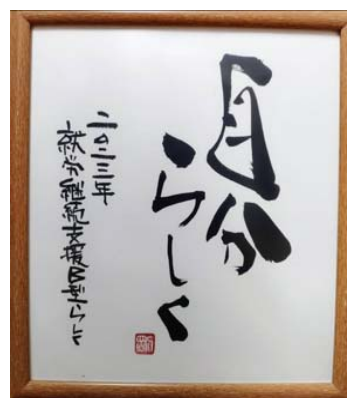 自分
らしく
二〇二三年
就労継続支援B型らしく